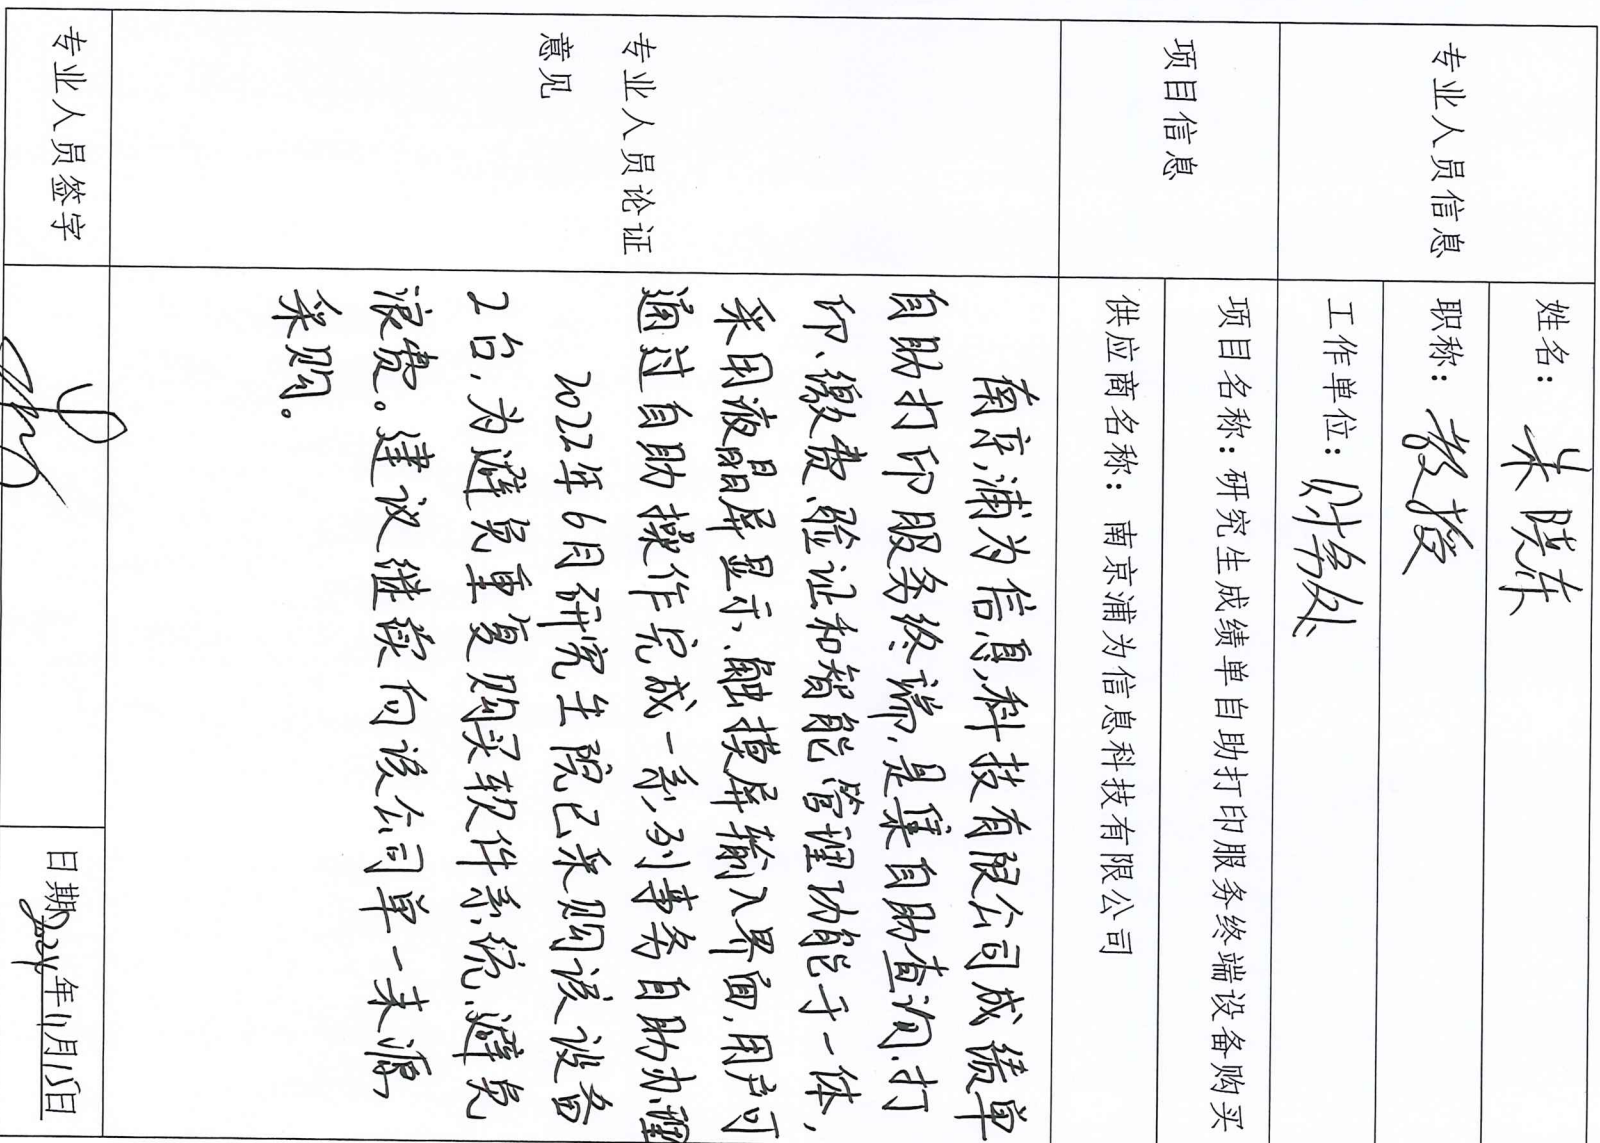 专业人员信息
姓名：
职称：教授
工作单位：财务处
项目信息
项目名称：研究生成绩单自助打印服务终端设备购买
供应商名称：南京浦为信息科技有限公司
专业人员论证
意见
南京浦为信息科技有限公司成绩单
自助打印服务终端，是集自助查询、打
印、缴费、验证和智能管理功能于一体，
采用液晶屏显示、触摸屏输入界面，用户可
通过自助操作完成一系列事务自助办理
2022年6月研究生院已采购该设备
2台，为避免重复购买软件系统，避免
浪费。建议继续向该公司单一来源
采购。
专业人员签字
日期2024年11月15日